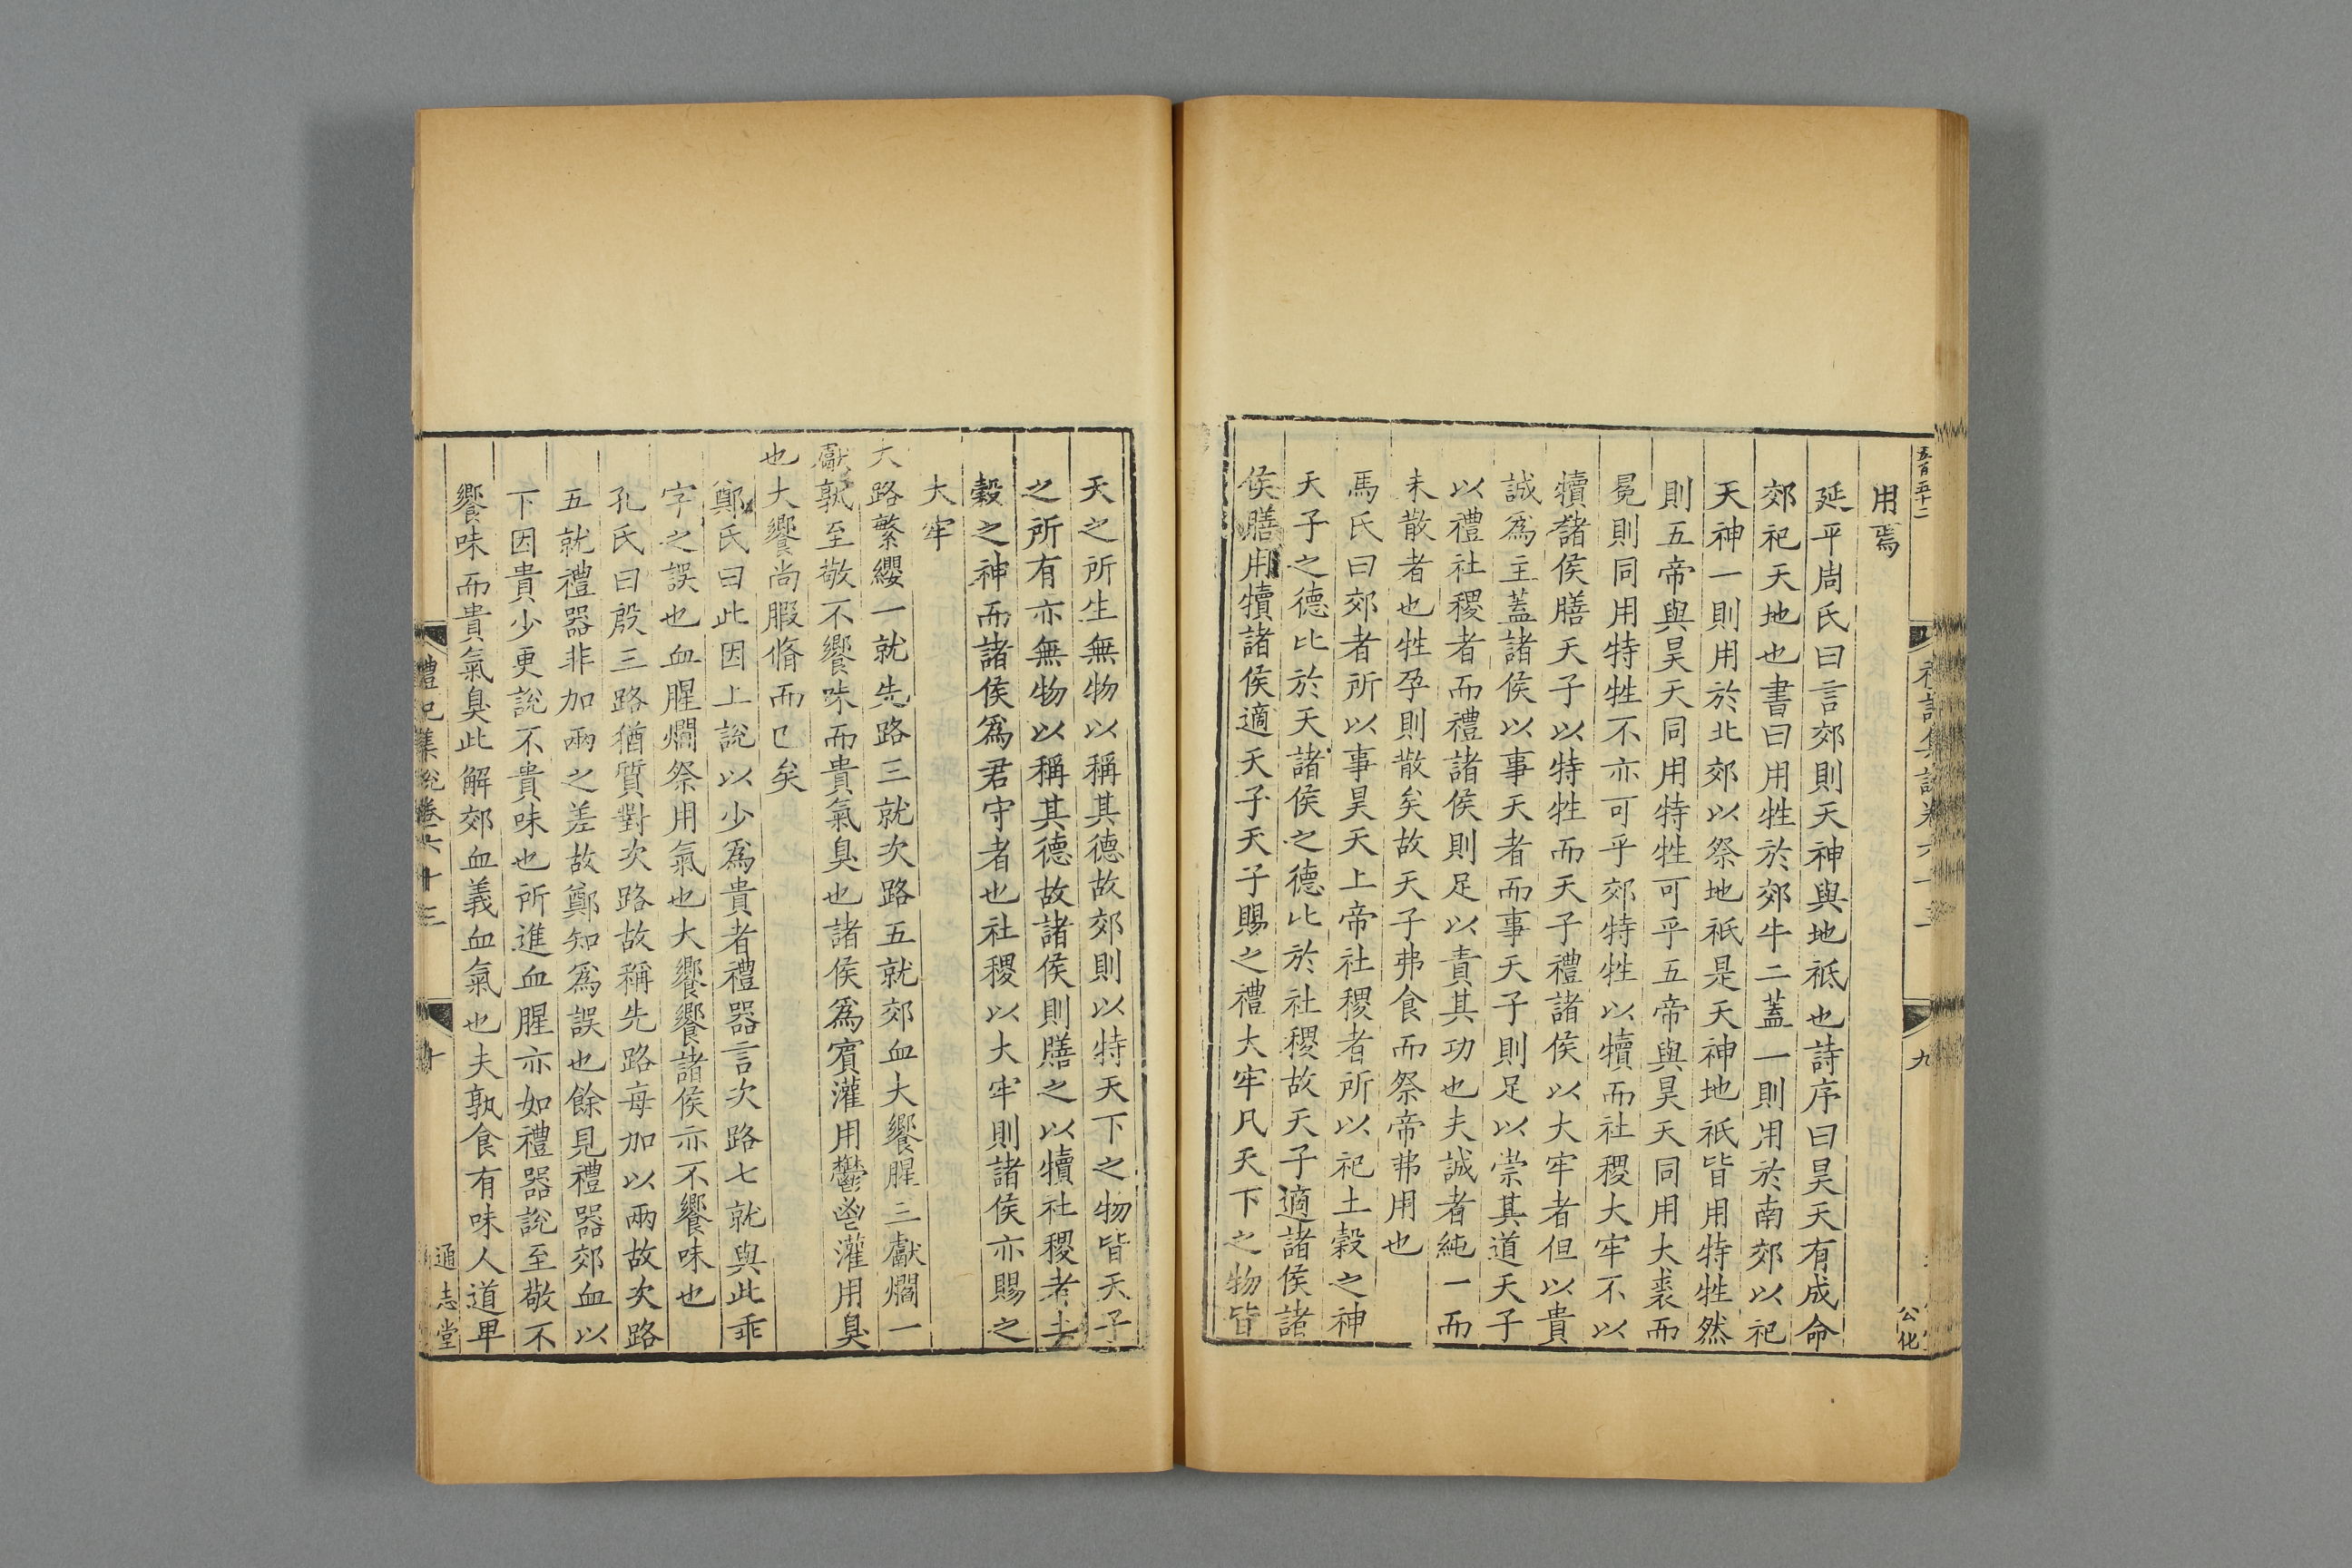 五百五十二
用焉
延平周氏曰言郊則天神與地祇也詩序曰昊天有成命
郊祀天地也書曰用牲於郊牛二蓋一則用於南郊以祀
天神一則用於北郊以祭地祇是天神地祇皆用特牲然
則五帝與昊天同用特牲可乎五帝與昊天同用大裘而
冕則同用特牲不亦可乎郊特牲以犢而社稷大牢不以
犢諸侯膳天子以特牲而天子禮諸侯以大牢者但以貴
誠爲主蓋諸侯以事天者而事天子則足以崇其道天子
以禮社稷者而禮諸侯則足以責其功也夫誠者純一而
未散者也牲孕則散矣故天子弗食而祭帝弗用也
馬氏曰郊者所以事昊天上帝社稷者所以祀土穀之神
天子之德比於天諸侯之德比於社稷故天子適諸侯諸
侯膳用犢諸侯適天子天子賜之禮大牢凡天下之物皆
九
公化
天之所生無物以稱其德故郊則以特天下之物皆天子
之所有亦無物以稱其德故諸侯則膳之以犢社稷者土
穀之神而諸侯爲君守者也社稷以大牢則諸侯亦賜之
大牢
大路繁纓一就先路三就次路五就郊血大饗腥三獻爓一
獻孰至敬不饗味而貴氣臭也諸侯爲賓灌用鬱鬯灌用臭
也大饗尚腶脩而已矣
鄭氏曰此因上說以少爲貴者禮器言次路七就與此乖
字之誤也血腥爓祭用氣也大饗饗諸侯亦不饗味也
孔氏曰殷三路猶質對次路故稱先路每加以兩故次路
五就禮器非加兩之差故鄭知爲誤也餘見禮器郊血以
下因貴少更說不貴味也所進血腥亦如禮器說至敬不
饗味而貴氣臭此解郊血義血氣也夫孰食有味人道卑
禮記集說卷六十三
十
通志堂